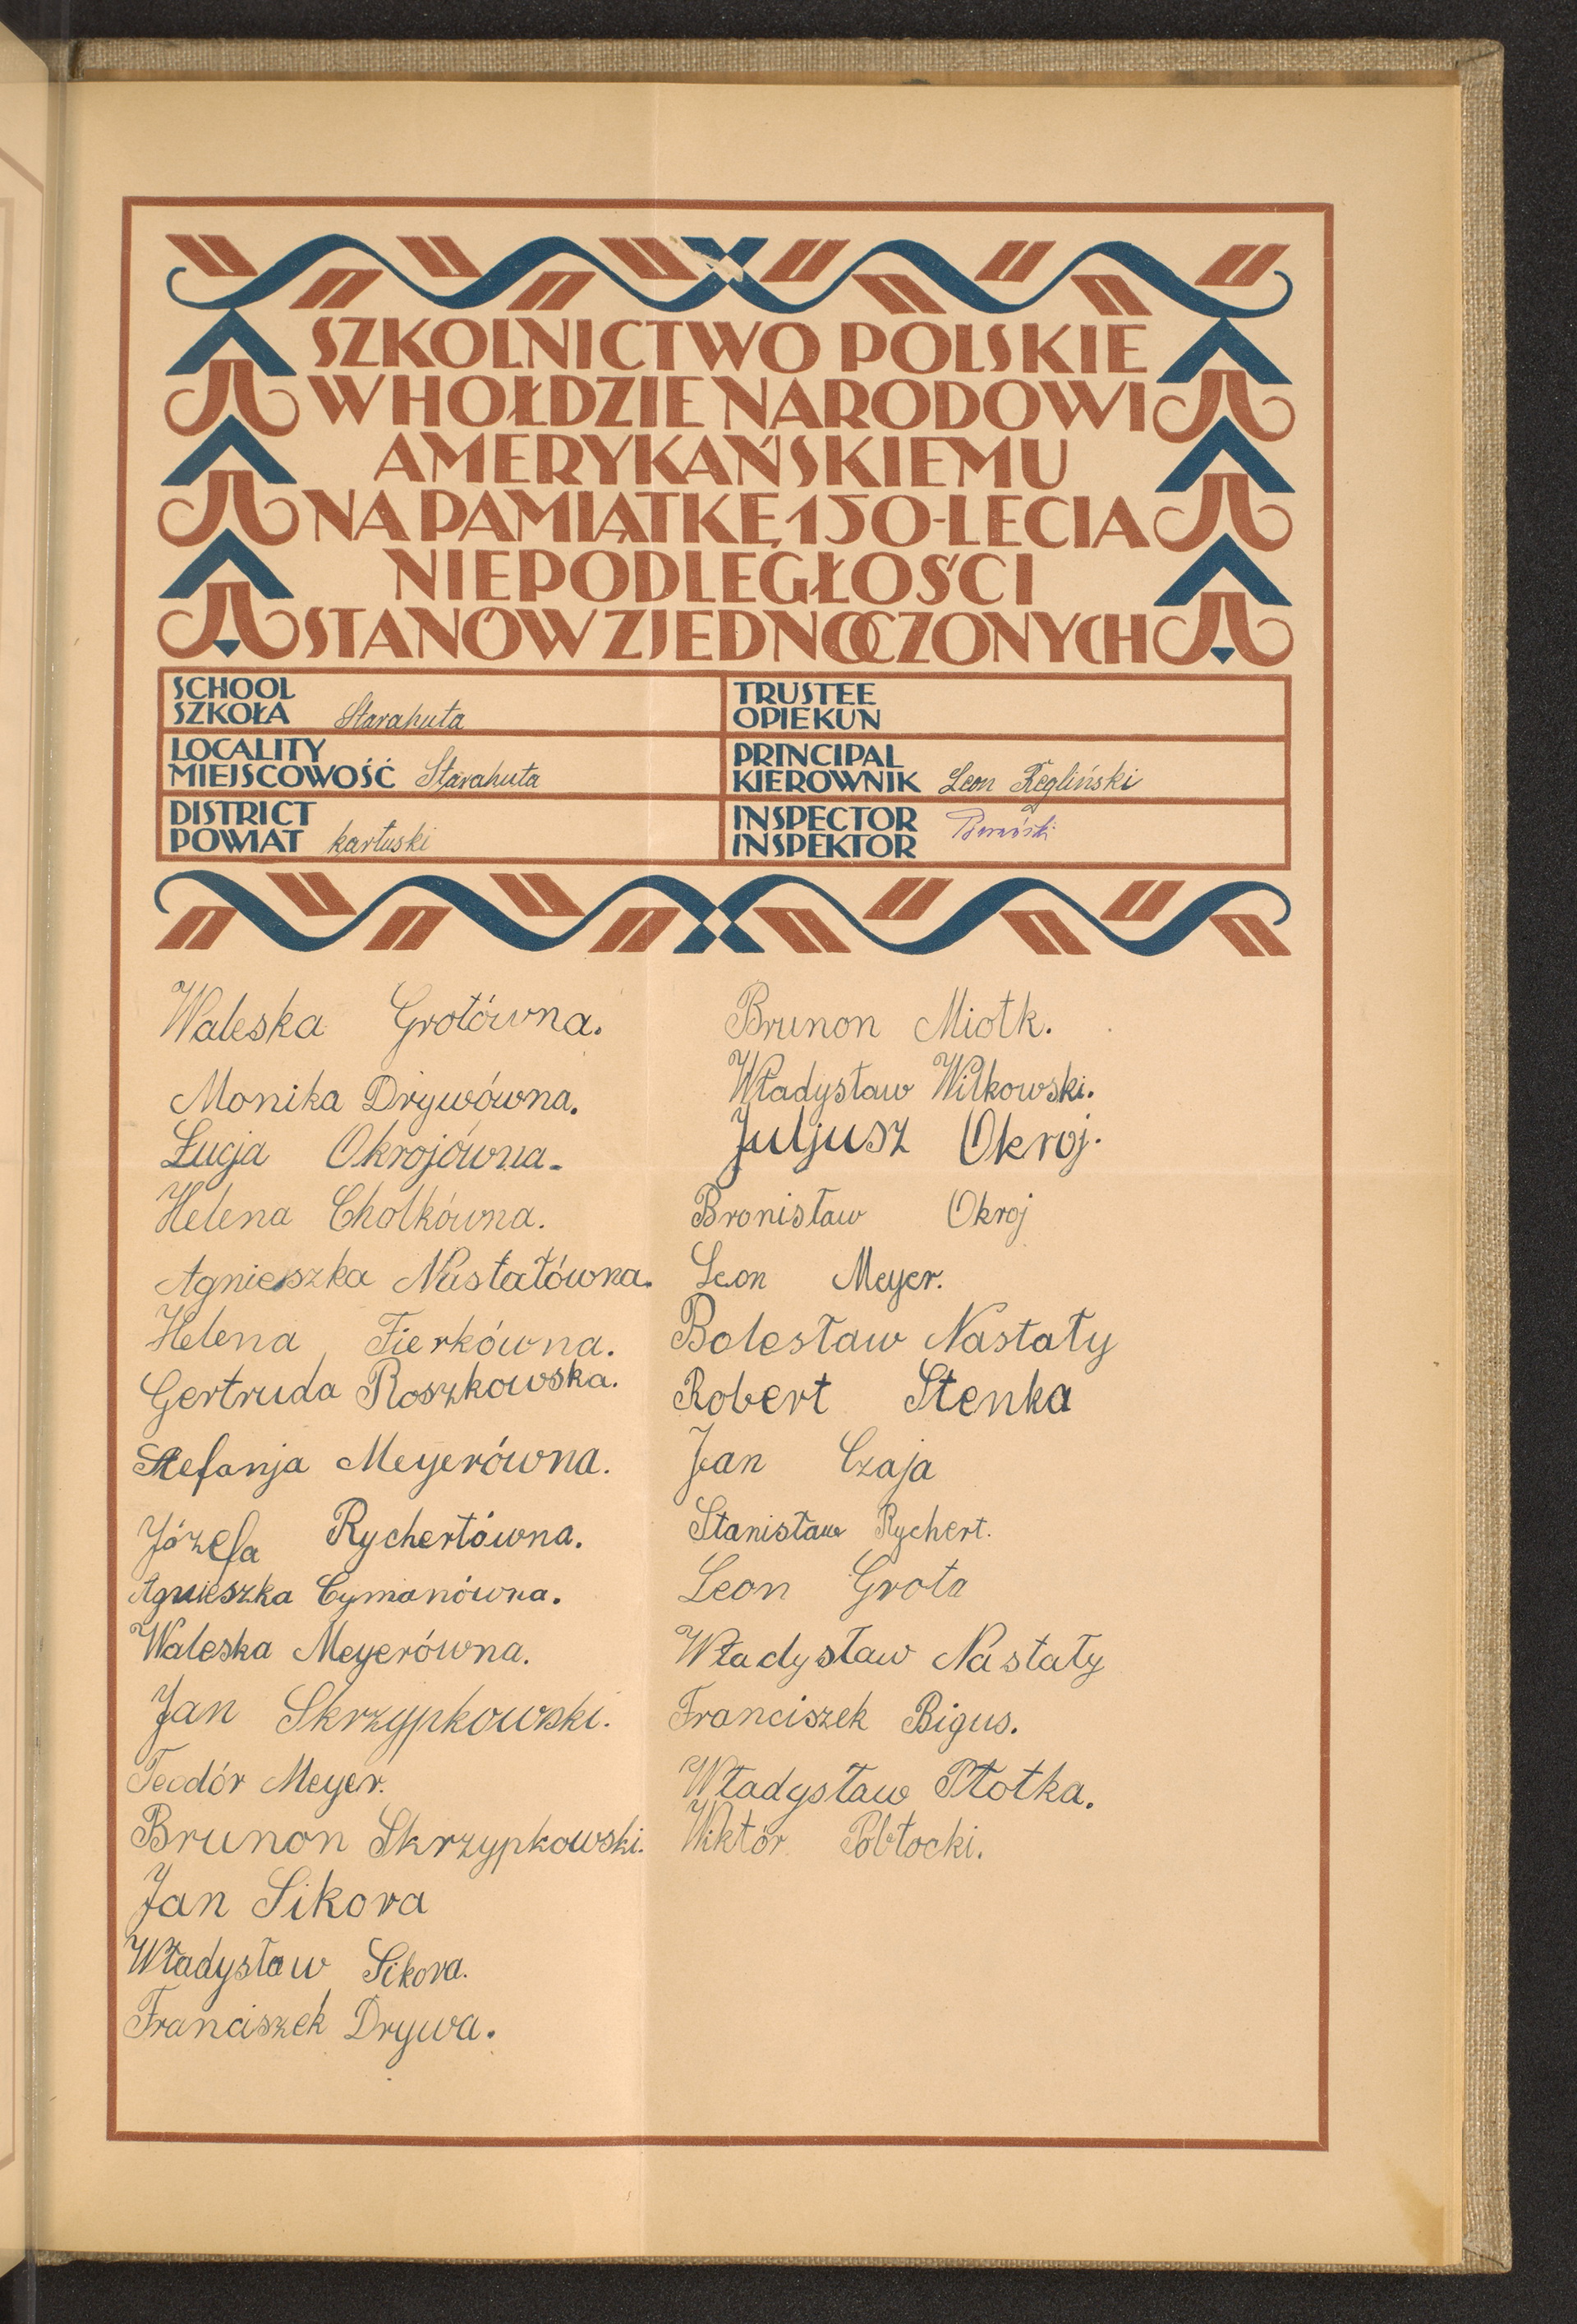 SZKOLNICTWO POLSKIE
W HOŁDZIE NARODOWI
AMERYKAŃSKIEMU
NA PAMIĄTKĘ 150-LECIA
NIEPODLEGŁOŚCI
STANÓW ZJEDNOCZONYCH
SCHOOL
SZKOŁA Starahuta
TRUSTEE
OPIEKUN
LOCALITY
MIEJSCOWOŚĆ Starahuta
PRINCIPAL
KIEROWNIK Leon Regliński
DISTRICT
POWIAT kartuski
INSPECTOR
INSPEKTOR
Waleska Grotówna.
Monika Drywówna.
Łucja Okrojówna.
Helena Cholkówna.
Agnieszka Nastałówna.
Helena Fierkówna.
Gertruda Roszkowska.
Stefanja Meyerówna.
Józefa Rychertówna.
Agnieszka Cymanówna.
Waleska Meyerówna.
Jan Skrzypkowski.
Teodór Meyer.
Brunon Skrzypkowski.
Jan Sikora
Władysław Sikora.
Franciszek Drywa.
Brunon Miotk.
Władysław Wilkowski.
Juljusz Okroj.
Bronisław Okroj
Leon Meyer.
Bolesław Nastały
Robert Stenka
Jan Czaja
Stanisław Rychert.
Leon Grota
Władysław Nastały
Franciszek Bigus.
Władysław Płotka.
Wiktór Pobłocki.